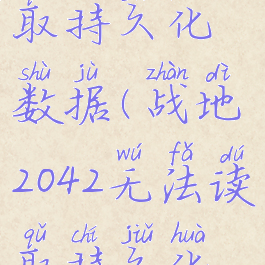 取持久化
shù jù zhàn dì
数据(战地
wú fǎ dú
2042无法读
qǔ chí jiǔ huà
取持久化